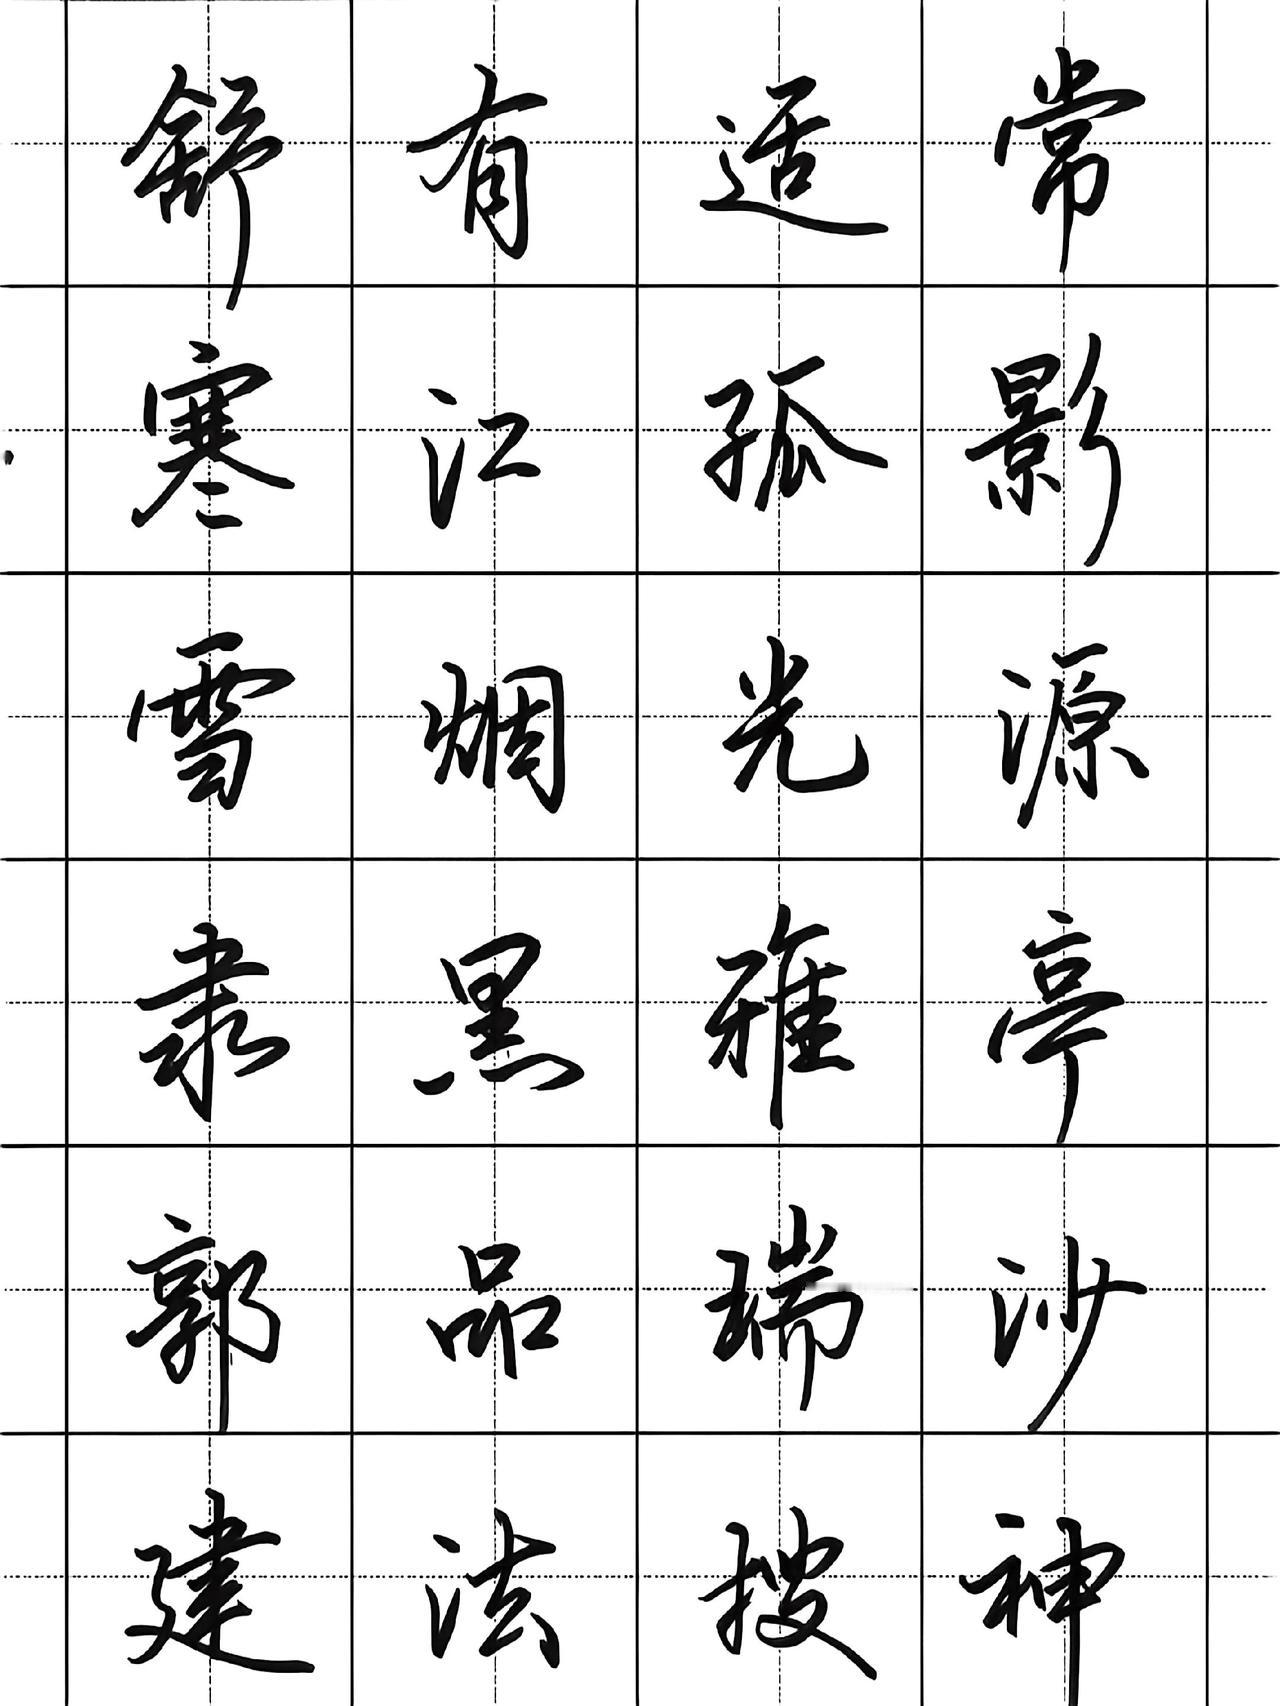 舒有适常
寒江孤影
雪烟光源
隶黑雅亭
郭品瑞沙
建法搜神